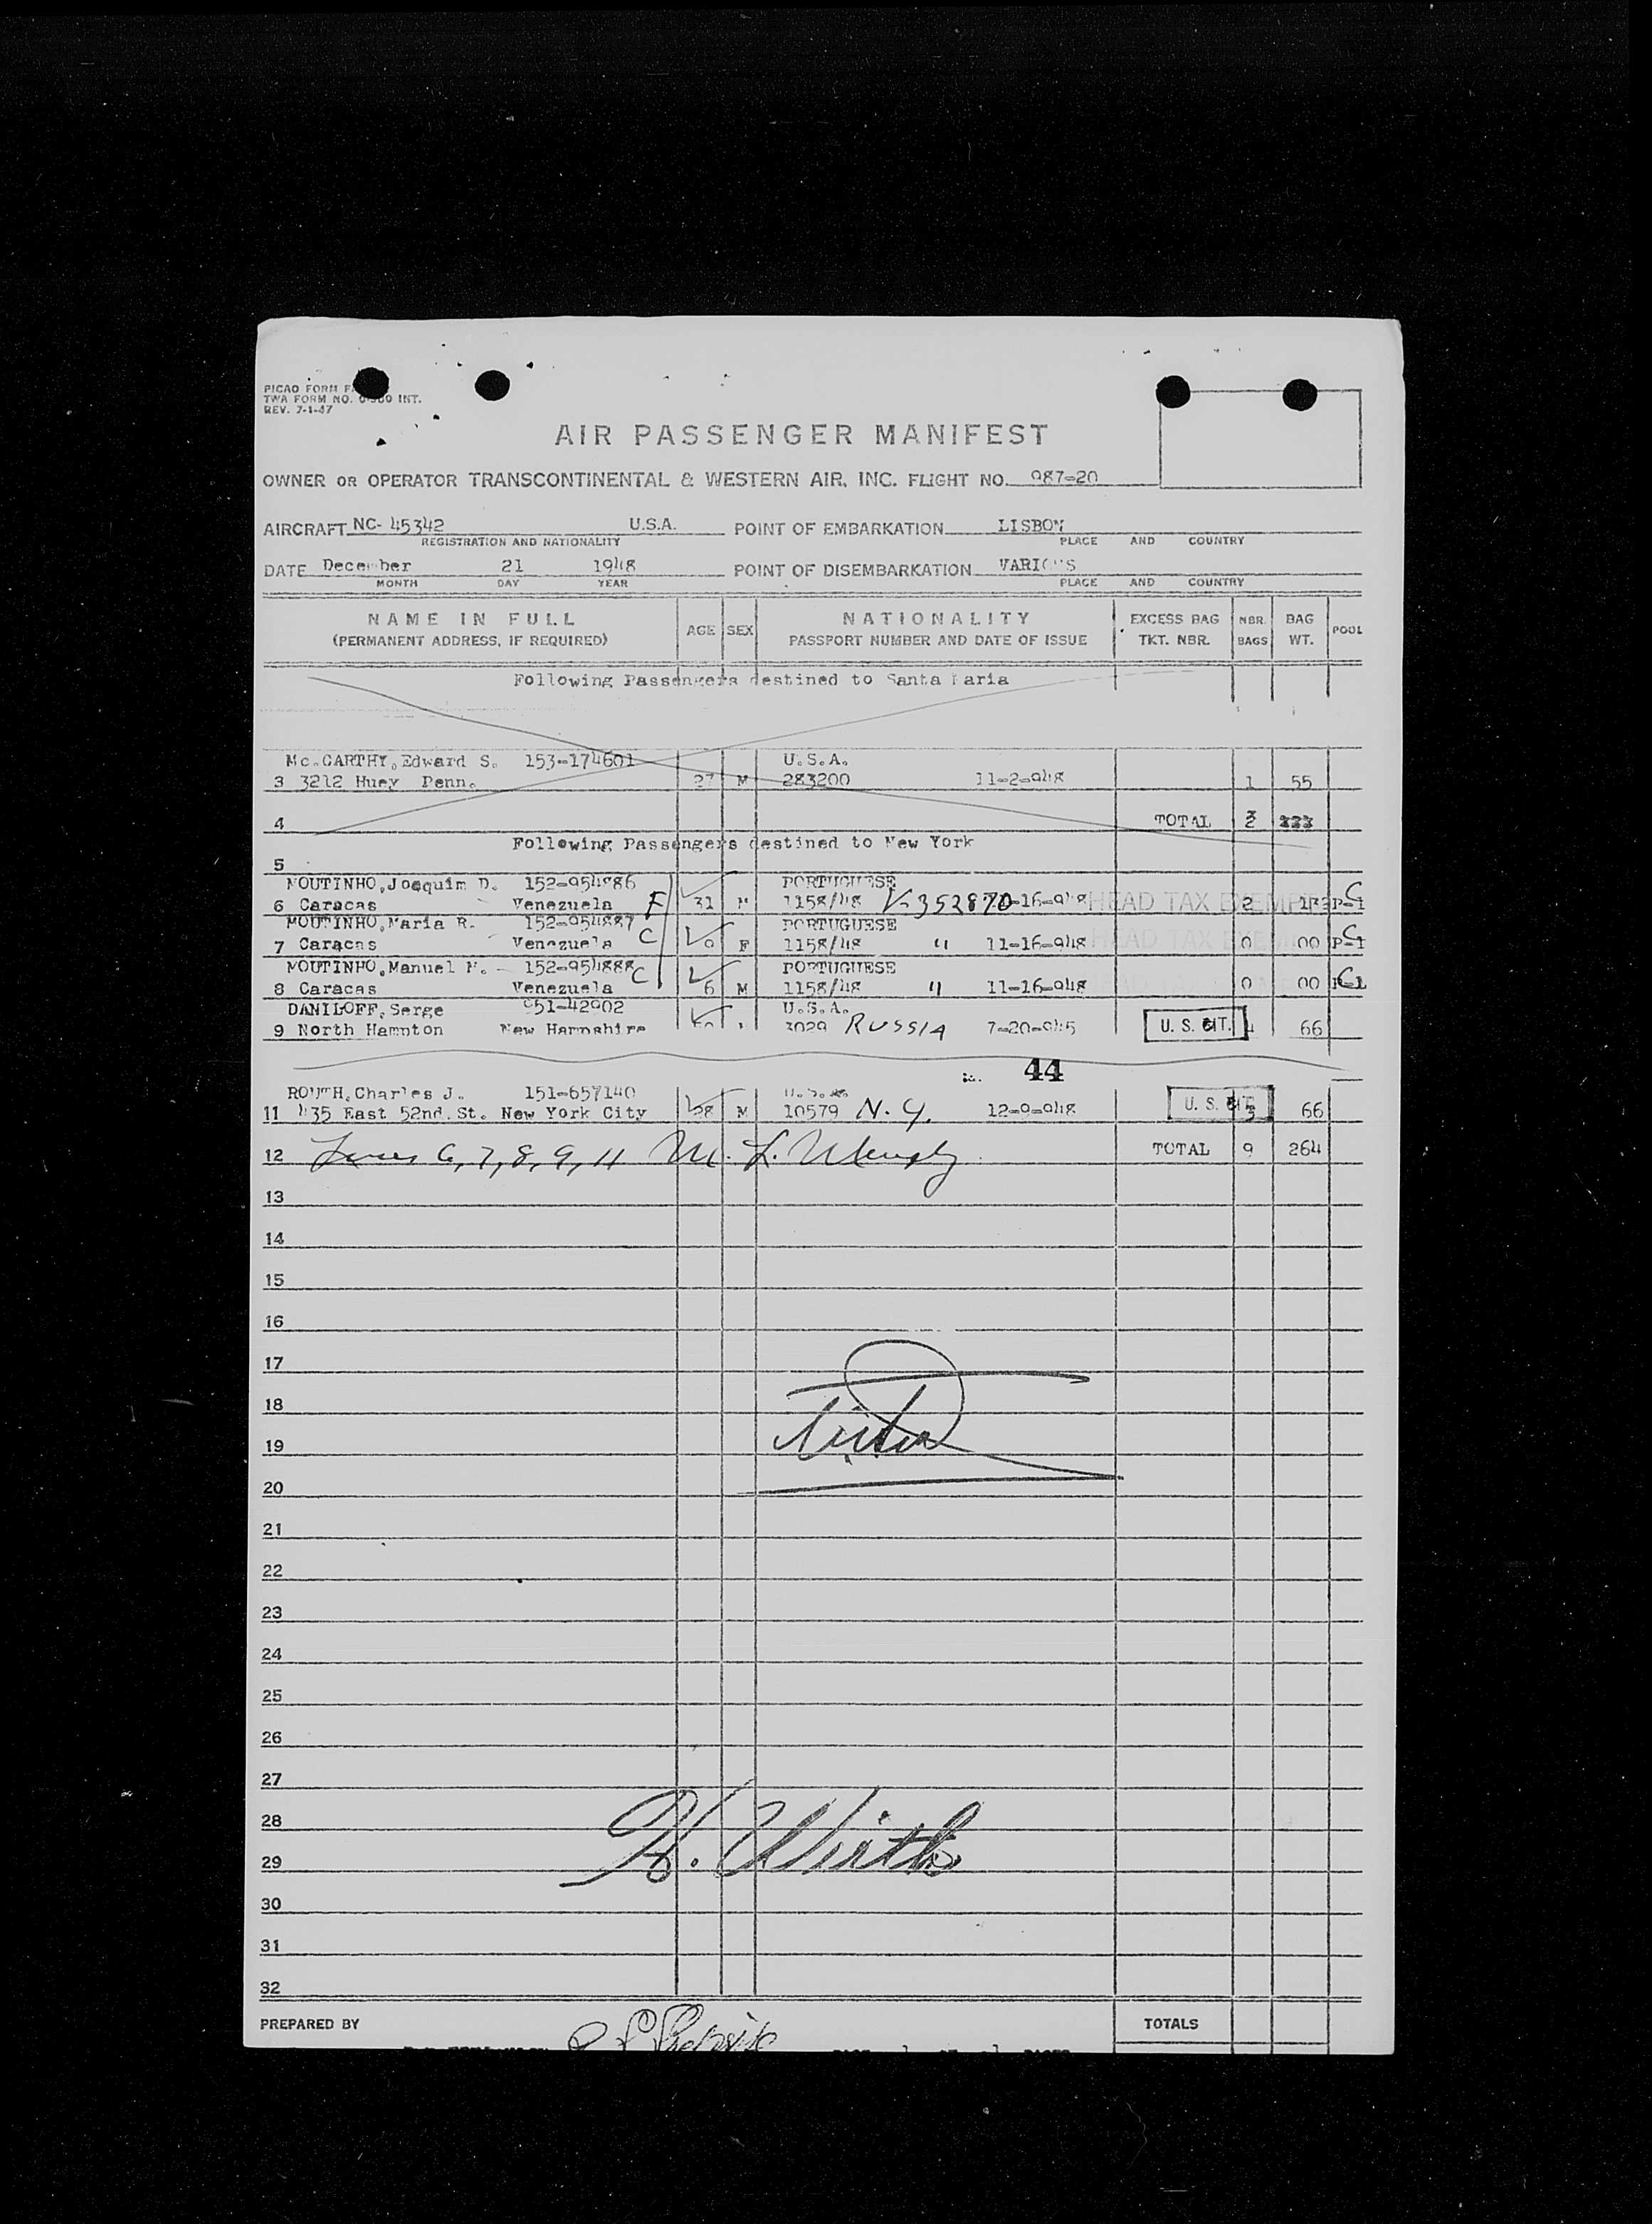 PICAO FORM
TWA FORM NO. INT.
REV. 7-1-47
AIR PASSENGER MANIFEST
OWNER OR OPERATOR TRANSCONTINENTAL & WESTERN AIR, INC. FLIGHT NO. 987-20
AIRCRAFT NC- 45342 U.S.A. POINT OF EMBARKATION LISBON
REGISTRATION AND NATIONALITY PLACE AND COUNTRY
DATE December 21 1948 POINT OF DISEMBARKATION VARIOUS
MONTH DAY YEAR PLACE AND COUNTRY
NAME IN FULL AGE SEX NATIONALITY EXCESS BAG NBR. BAG POOL
(PERMANENT ADDRESS, IF REQUIRED) PASSPORT NUMBER AND DATE OF ISSUE TKT. NBR. BAGS WT.
Following Passengers destined to Santa Maria
Mc.CARTHY,Edward S. 153-174601 U.S.A.
3 3212 Huey Penn. 27 M 283200 11-2-948 1 55
4 TOTAL 2
Following Passengers destined to New York
5
MOUTINHO,Joaquim D. 152-954886 PORTUGUESE
6 Caracas Venezuela F 31 M 1158/48 V-352870 -16-948 HEAD TAX EXEMPT 2 132 P-1 C
MOUTINHO,Maria R. 152-954887 PORTUGUESE
7 Caracas Venezuela C 9 F 1158/48 " 11-16-948 HEAD TAX 0 00 P-1 C
MOUTINHO,Manuel M. 152-954888 PORTUGUESE
8 Caracas Venezuela C 6 M 1158/48 " 11-16-948 0 00 P-1 C
DANILOFF,Serge 951-42902 U.S.A.
9 North Hampton New Hampshire 3029 RUSSIA 7-20-945 U. S. CIT. 4 66
44
ROUTH,Charles J. 151-657140 U.S.A.
11 435 East 52nd. St. New York City 28 M 10579 N.Y. 12-9-948 U. S. CIT. 3 66
12 Lines 6, 7, 8, 9, 11 M. L. TOTAL 9 264
13
14
15
16
17
18
19
20
21
22
23
24
25
26
27
28
H. Wirth
29
30
31
32
PREPARED BY TOTALS